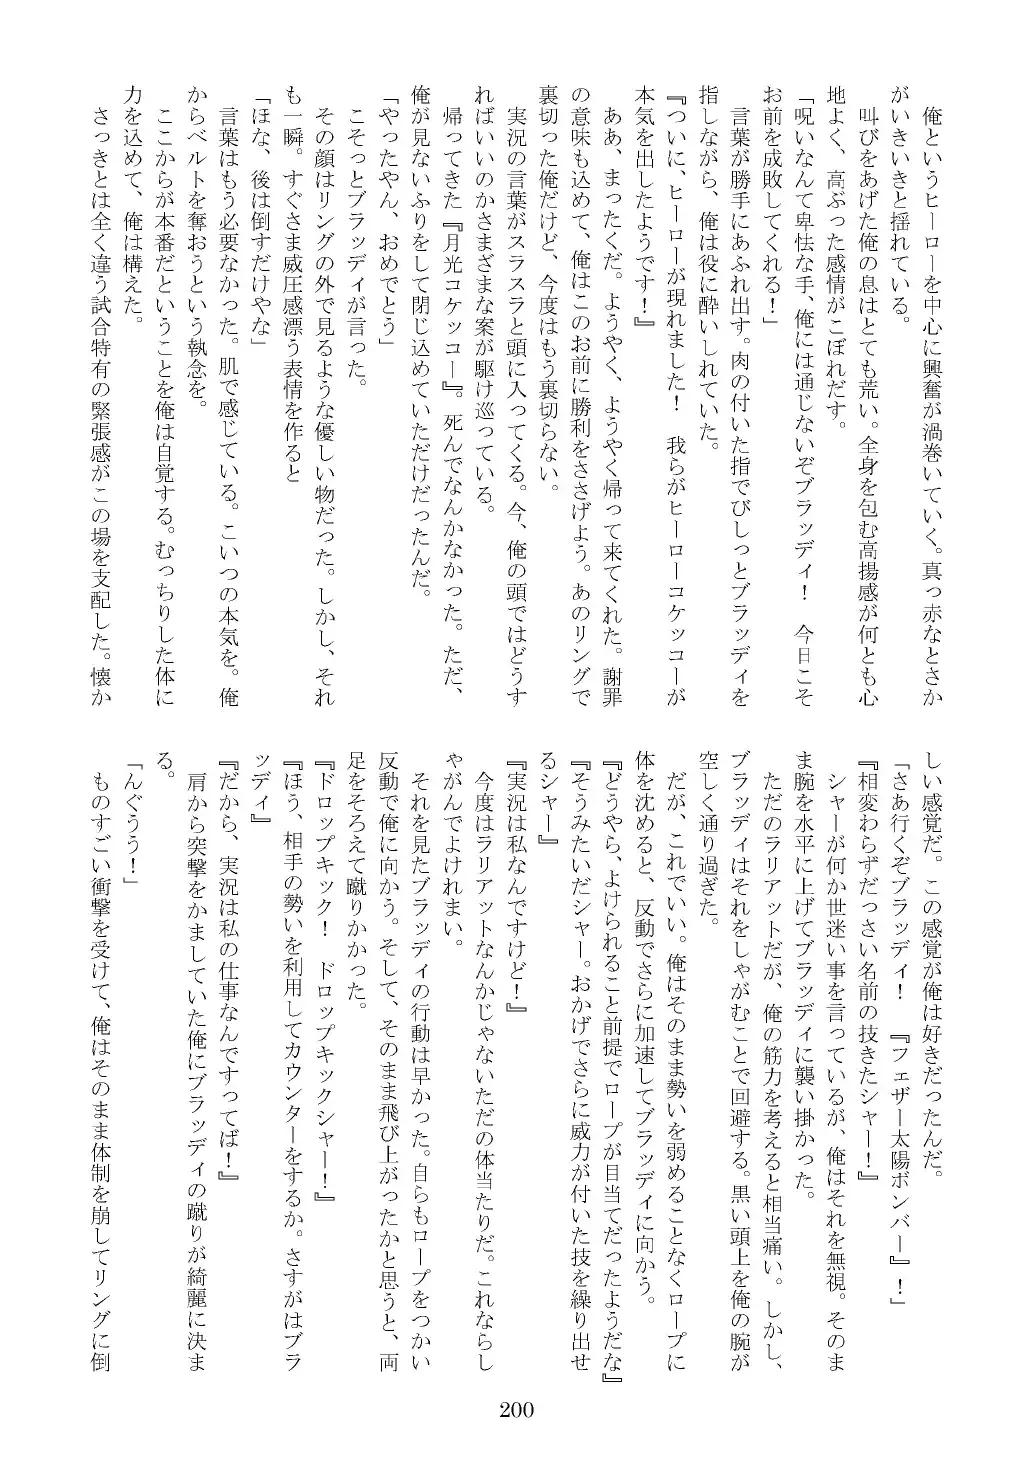 俺というヒーローを中心に興奮が渦巻いていく。真っ赤なとさか
がいきいきと揺れている。
　叫びをあげた俺の息はとても荒い。全身を包む高揚感が何とも心
地よく、高ぶった感情がこぼれだす。
「呪いなんて卑怯な手、俺には通じないぞブラッディ！　今日こそ
お前を成敗してくれる！」
　言葉が勝手にあふれ出す。肉の付いた指でびしっとブラッディを
指しながら、俺は役に酔いしれていた。
『ついに、ヒーローが現れました！　我らがヒーローコケッコーが
本気を出したようです！』
　ああ、まったくだ。ようやく、ようやく帰って来てくれた。謝罪
の意味も込めて、俺はこのお前に勝利をささげよう。あのリングで
裏切った俺だけど、今度はもう裏切らない。
　実況の言葉がスラスラと頭に入ってくる。今、俺の頭ではどうす
ればいいのかさまざまな案が駆け巡っている。
　帰ってきた『月光コケッコー』。死んでなんかなかった。ただ、
俺が見ないふりをして閉じ込めていただけだったんだ。
「やったやん、おめでとう」
　こそっとブラッディが言った。
　その顔はリングの外で見るような優しい物だった。しかし、それ
も一瞬。すぐさま威圧感漂う表情を作ると
「ほな、後は倒すだけやな」
　言葉はもう必要なかった。肌で感じている。こいつの本気を。俺
からベルトを奪おうという執念を。
　ここからが本番だということを俺は自覚する。むっちりした体に
力を込めて、俺は構えた。
　さっきとは全く違う試合特有の緊張感がこの場を支配した。懐か
しい感覚だ。この感覚が俺は好きだったんだ。
「さあ行くぞブラッディ！　『フェザー太陽ボンバー』！」
『相変わらずだっさい名前の技きたシャー！』
　シャーが何か世迷い事を言っているが、俺はそれを無視。そのま
ま腕を水平に上げてブラッディに襲い掛かった。
　ただのラリアットだが、俺の筋力を考えると相当痛い。しかし、
ブラッディはそれをしゃがむことで回避する。黒い頭上を俺の腕が
空しく通り過ぎた。
　だが、これでいい。俺はそのまま勢いを弱めることなくロープに
体を沈めると、反動でさらに加速してブラッディに向かう。
『どうやら、よけられること前提でロープが目当てだったようだな』
『そうみたいだシャー。おかげでさらに威力が付いた技を繰り出せ
るシャー』
『実況は私なんですけど！』
　今度はラリアットなんかじゃないただの体当たりだ。これならし
ゃがんでよけれまい。
　それを見たブラッディの行動は早かった。自らもロープをつかい
反動で俺に向かう。そして、そのまま飛び上がったかと思うと、両
足をそろえて蹴りかかった。
『ドロップキック！　ドロップキックシャー！』
『ほう、相手の勢いを利用してカウンターをするか。さすがはブラ
ッディ』
『だから、実況は私の仕事なんですってば！』
　肩から突撃をかましていた俺にブラッディの蹴りが綺麗に決ま
る。
「んぐうう！」
　ものすごい衝撃を受けて、俺はそのまま体制を崩してリングに倒
200